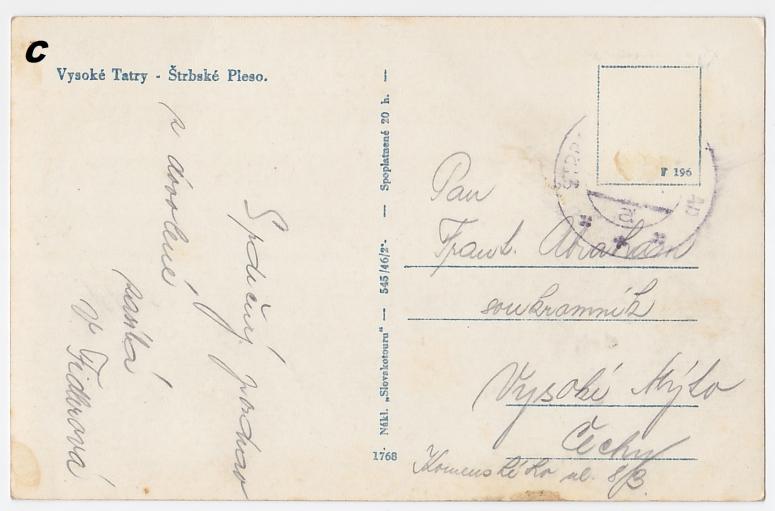 C
Vysoké Tatry - Štrbské Pleso.
Srdečný pozdrav
z dovolené
zasílá
V Fidlerová
1768
Nákl. „Slovakotouru“ — 545/46/2 — Spoplatnené 20 h. —
F 196
Pan
Frant. Abraham
soukromník
Vysoké Mýto
Čechy
Komenského ul. 8/3.